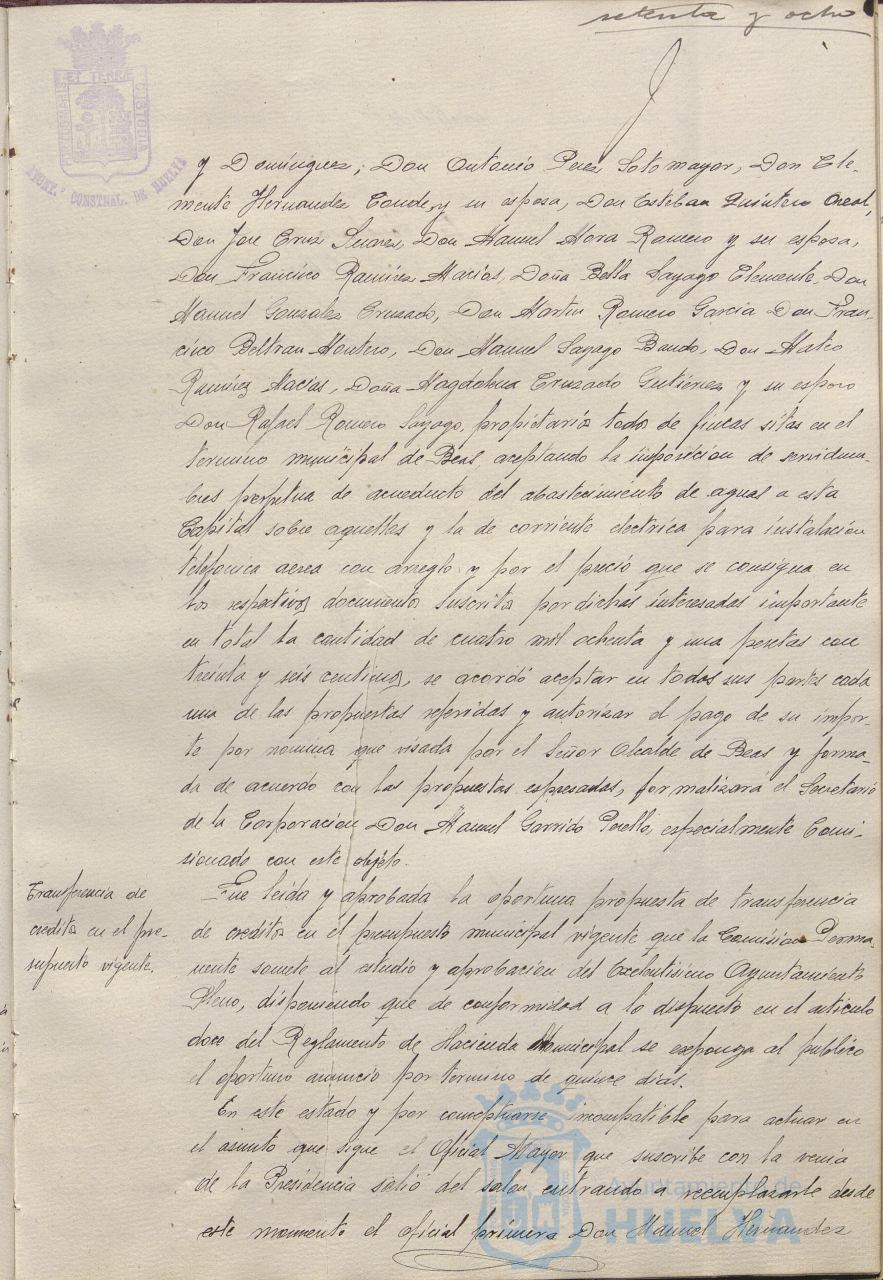 setenta y ocho
PORTUS MARIS ET TERRÆ CUSTODIA
AYUNT.º CONSTNAL. DE HUELVA
y Domínguez; Don Antonio Perez Sotomayor, Don Cle-
mente Hernandez Conde, y su esposa, Don Esteban Quintero
Don Jose Cruz Suarez, Don Manuel Mora Romero y su esposa,
Don Francisco Ramirez Macias, Doña Bella Sayago Clemente, Don
Manuel Gonzalez Cruzado, Don Martin Romero Garcia Don Fran-
cisco Beltran Montero, Don Manuel Sayago Bando, Don Mateo
Ramirez Macias, Doña Magdalena Cruzado Gutierrez y su esposo
Don Rafael Romero Sayago, propietarios todos de fincas sitas en el
termino municipal de Beas, aceptando la imposicion de servidum-
bres perpetua de acueducto del abastecimiento de aguas a esta
Capital sobre aquellas y la de corriente electrica para instalacion
telefonica aerea con arreglo y por el precio que se consigna en
los respectivos documentos suscritos por dichos interesados importante
en total la cantidad de cuatro mil ochenta y una pesetas con
treinta y seis centimos, se acordó aceptar en todas sus partes cada
una de las propuestas referidas y autorizar el pago de su impor-
te por nomina que visada por el Señor Alcalde de Beas y forma-
da de acuerdo con las propuestas espresadas, formalizará el Secretario
de la Corporacion Don Manuel Garrido Perelló, especialmente Comi-
sionado con este objeto.
Transferencia de
creditos en el pre-
supuesto vigente.
Fue leida y aprobada la oportuna propuesta de transferencia
de creditos en el presupuesto municipal vigente que la Comision Perma-
nente somete al estudio y aprobacion del Excelentisimo Ayuntamiento
Pleno, disponiendo que de conformidad a lo dispuesto en el articulo
doce del Reglamento de Hacienda Municipal se exponga al publico
el oportuno anuncio por termino de quince dias.
En este estado y por conceptuarse incompatible para actuar en
el asunto que sigue el Oficial Mayor que suscribe con la venia
de la Presidencia salió del salon entrando a reemplazarle desde
este momento el oficial primero Don Manuel Hernandez
Ayuntamiento de
HUELVA